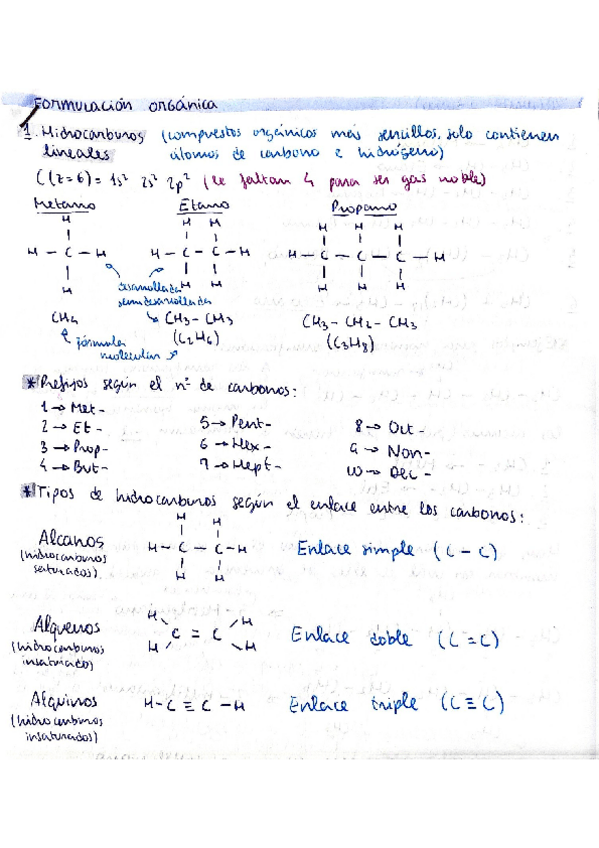 Formulación orgánica
1. Hidrocarburos (compuestos orgánicos más sencillos, solo contienen
lineales átomos de carbono e hidrógeno)
C (z=6) = 1s² 2s² 2p² (le faltan 4 para ser gas noble)
Metano Etano Propano
H H H H H H
H - C - H H - C - C - H H - C - C - C - H
H H H H H H
desarrollada
semidesarrollada
CH4 CH3 - CH3 CH3 - CH2 - CH3
fórmula molecular (C2H6) (C3H8)
* Prefijos según el nº de carbonos:
1 → Met- 5 → Pent- 8 → Oct-
2 → Et- 6 → Hex- 9 → Non-
3 → Prop- 7 → Hept- 10 → Dec-
4 → But-
* Tipos de hidrocarburos según el enlace entre los carbonos:
H H
Alcanos H - C - C - H Enlace simple (C - C)
(hidrocarburos H H
saturados)
H H
Alquenos C = C Enlace doble (C = C)
(hidrocarburos H H
insaturados)
Alquinos H - C ≡ C - H Enlace triple (C ≡ C)
(hidrocarburos
insaturados)